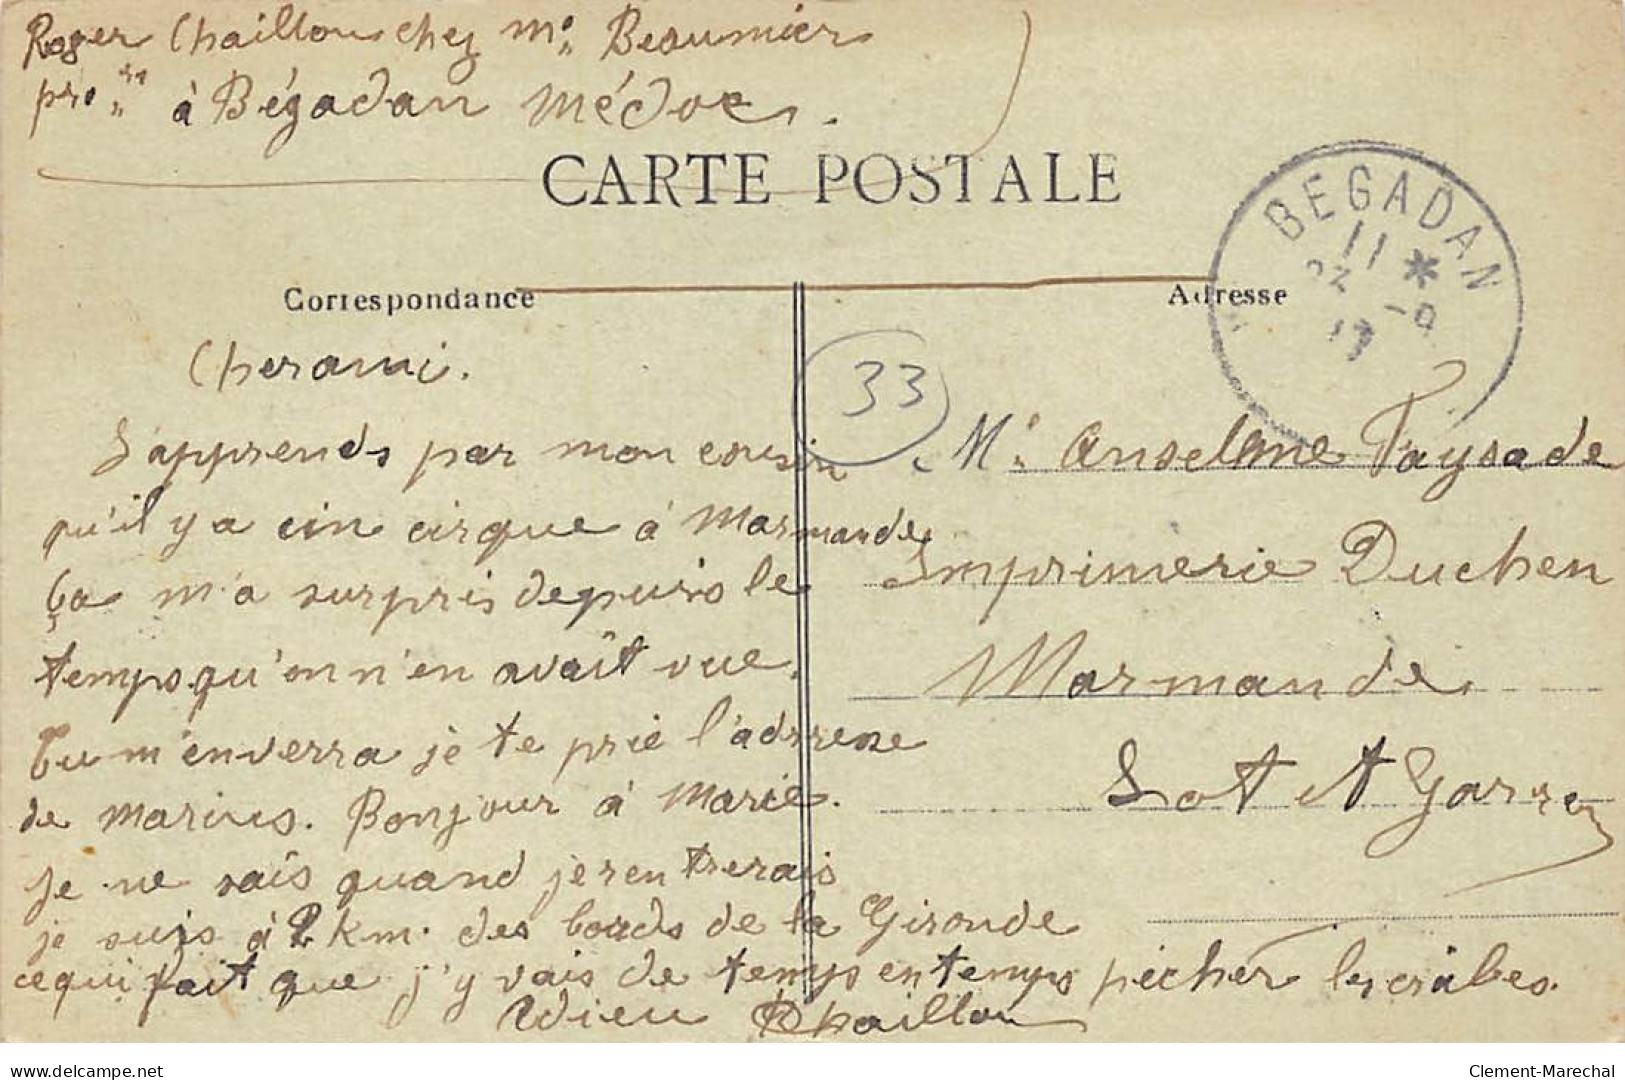 Roger Chaillou chez Mr. Beaumier
pro.re à Bégadan Médoc.
CARTE POSTALE
BEGADAN
11 *
17
Correspondance
Adresse
33
Cher ami.
J'apprends par mon cousin
qu'il y a un cirque à Marmande
ça m'a surpris depuis le
temps qu'on n'en avaît vue.
Tu m'enverra je te prie l'adresse
de Marius. Bonjour à Marie.
je ne saîs quand je rentrerais
je suis à 2 km. des bords de la Gironde
ce qui fait que j'y vais de temps en temps pêcher les crâbes.
Adieu RChaillou
Mr. Anselme Paysade
Imprimerie Duchen
Marmande
Lot et Garne
delcampe.net
Clement-Marechal